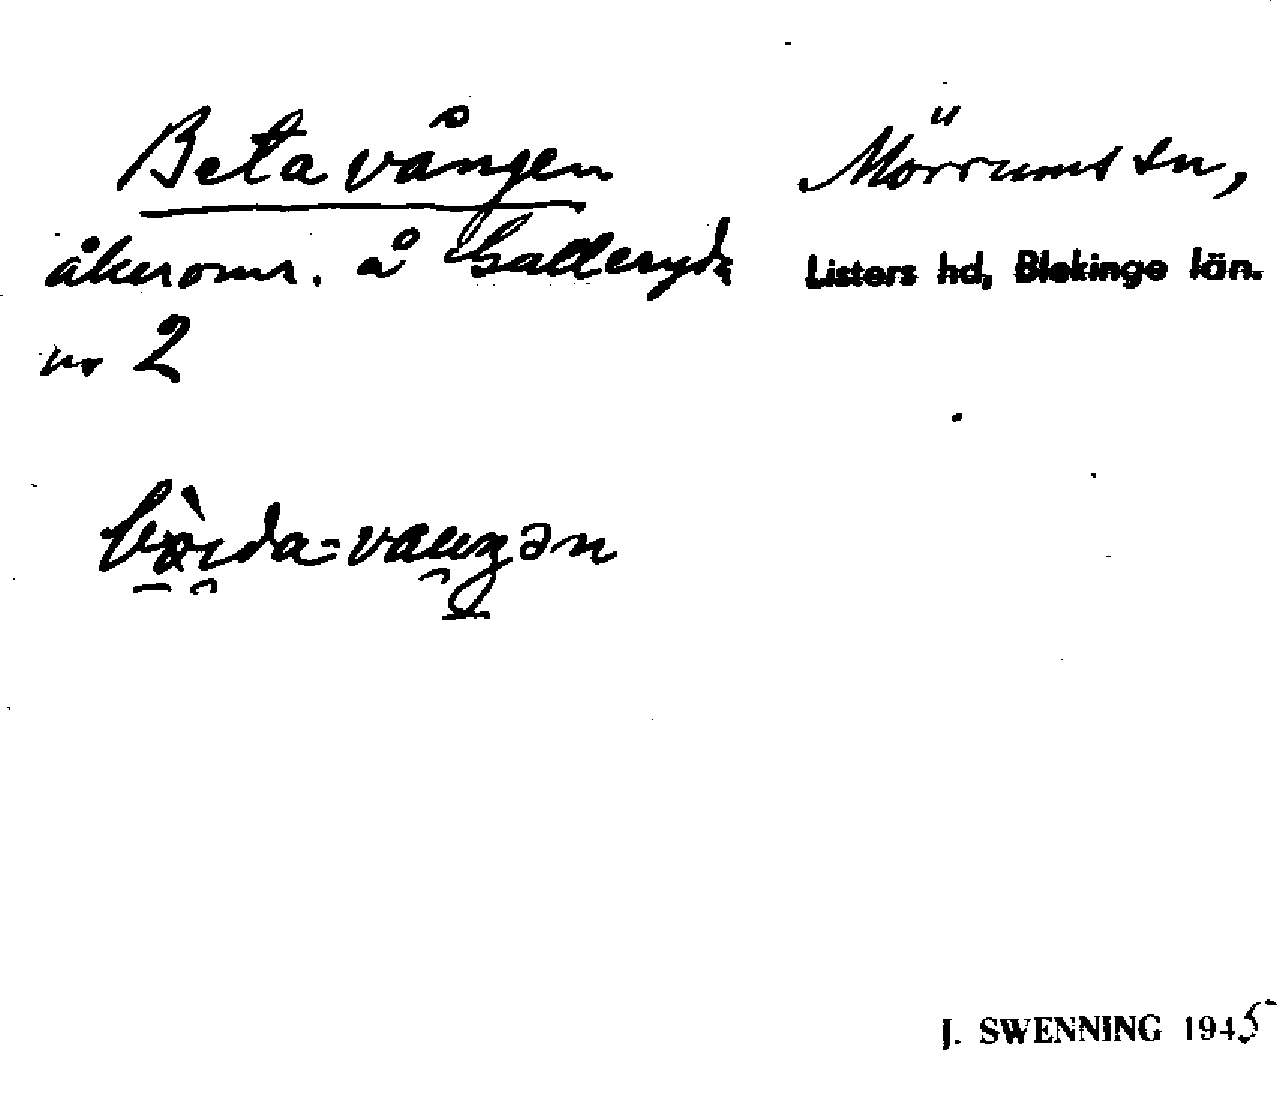 Betavången
Mörrums sn,
åkeromr. å Galleryd
Listers hd, Blekinge län.
nr 2
J. SWENNING 1945